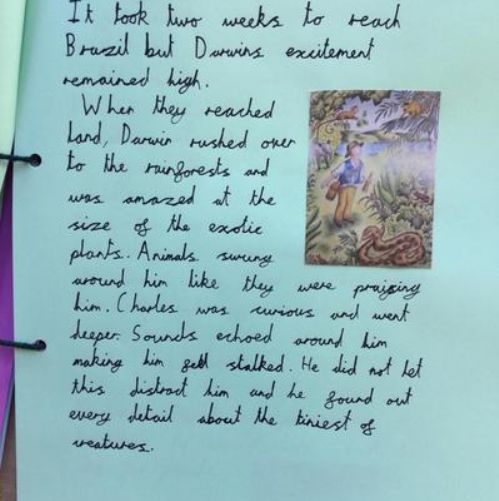 It took two weeks to reach
Brazil but Darwins excitement
remained high.
When they reached
land, Darwin rushed over
to the rainforests and
was amazed at the
size of the exotic
plants. Animals swung
around him like they were praising
him. Charles was curious and went
deeper. Sounds echoed around him
making him feel stalked. He did not let
this distract him and he found out
every detail about the tiniest of
creatures.